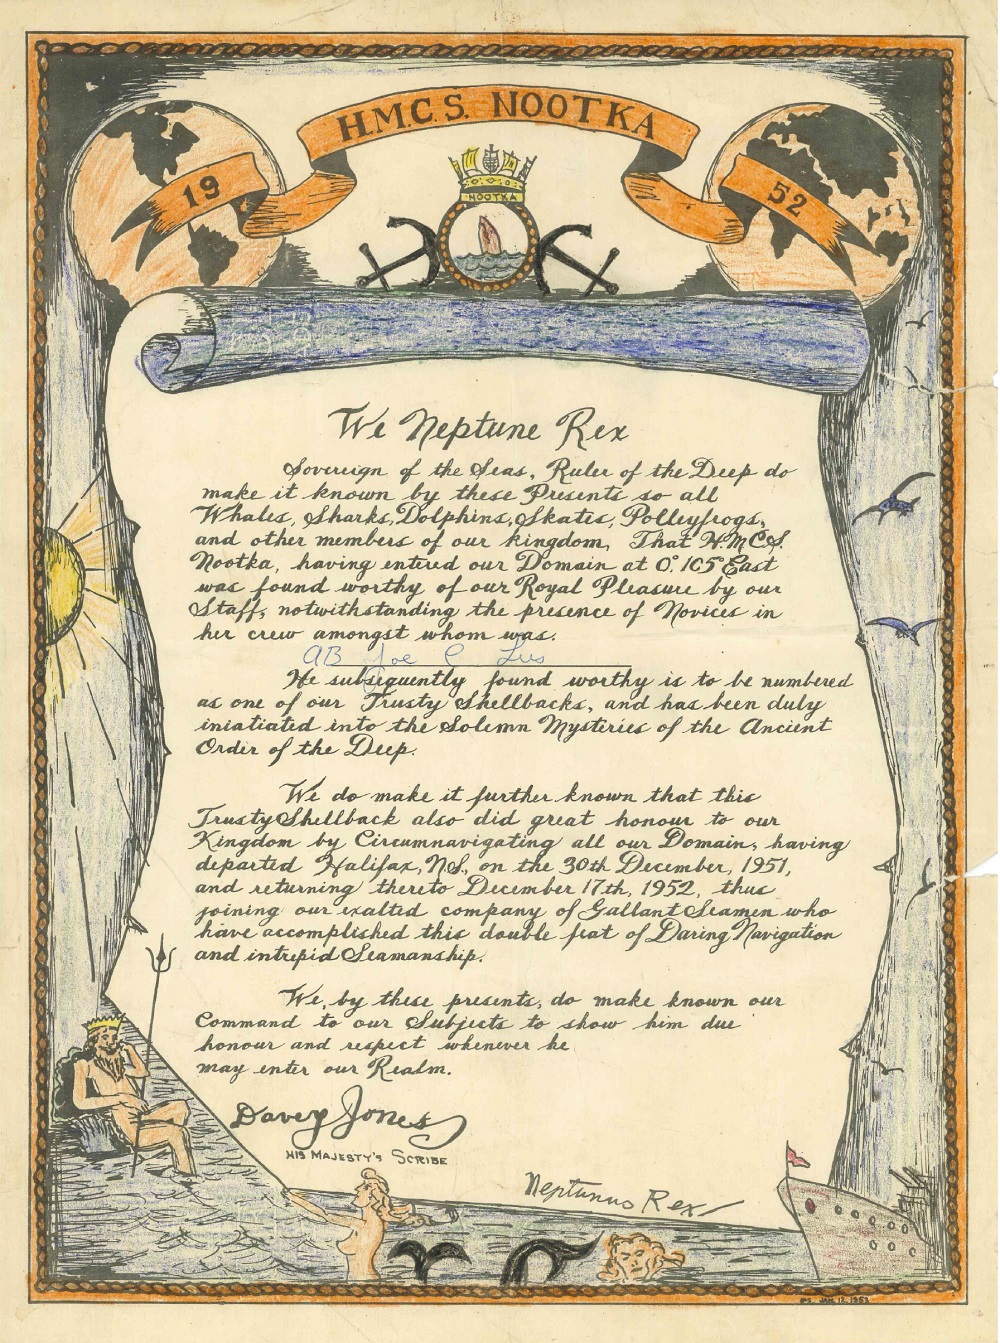 H.M.C.S. NOOTKA
19 52
NOOTKA
We Neptune Rex
Sovereign of the Seas, Ruler of the Deep do
make it known by these Presents so all
Whales, Sharks, Dolphins, Skates, Polleyfrogs,
and other members of our kingdom, That H.M.C.S.
Nootka, having entered our Domain at 0° 105° East
was found worthy of our Royal Pleasure by our
Staff, notwithstanding the presence of Novices in
her crew amongst whom was.
AB Joe C. Lus
He subsequently found worthy is to be numbered
as one of our Trusty Shellbacks, and has been duly
iniatiated into the Solemn Mysteries of the Ancient
Order of the Deep.
We do make it further known that this
Trusty Shellback also did great honour to our
Kingdom by Circumnavigating all our Domain, having
departed Halifax, N.S., on the 30th December, 1951,
and returning thereto December 17th, 1952, thus
joining our exalted company of Gallant Seamen who
have accomplished this double feat of Daring Navigation
and intrepid Seamanship.
We, by these presents, do make known our
Command to our Subjects to show him due
honour and respect whenever he
may enter our Realm.
Davey Jones
HIS MAJESTY'S SCRIBE
Neptunus Rex
JAN. 12, 1953